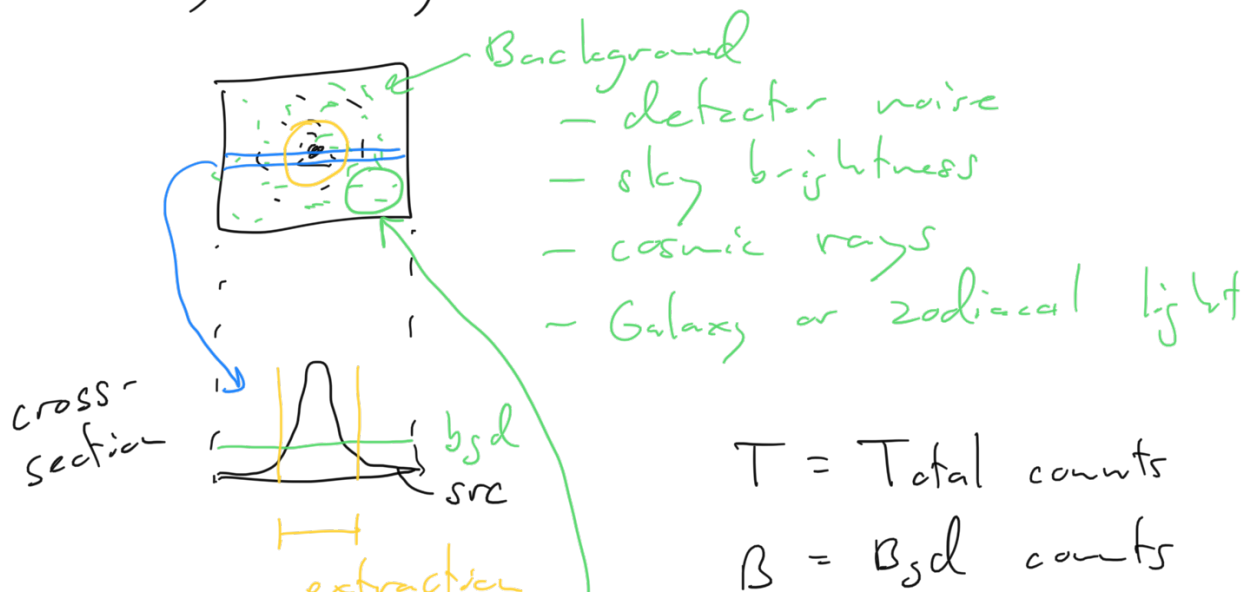 Background
- detector noise
- sky brightness
- cosmic rays
- Galaxy or zodiacal light
cross-
section
bgd
src
T = Total counts
B = Bgd counts
extraction